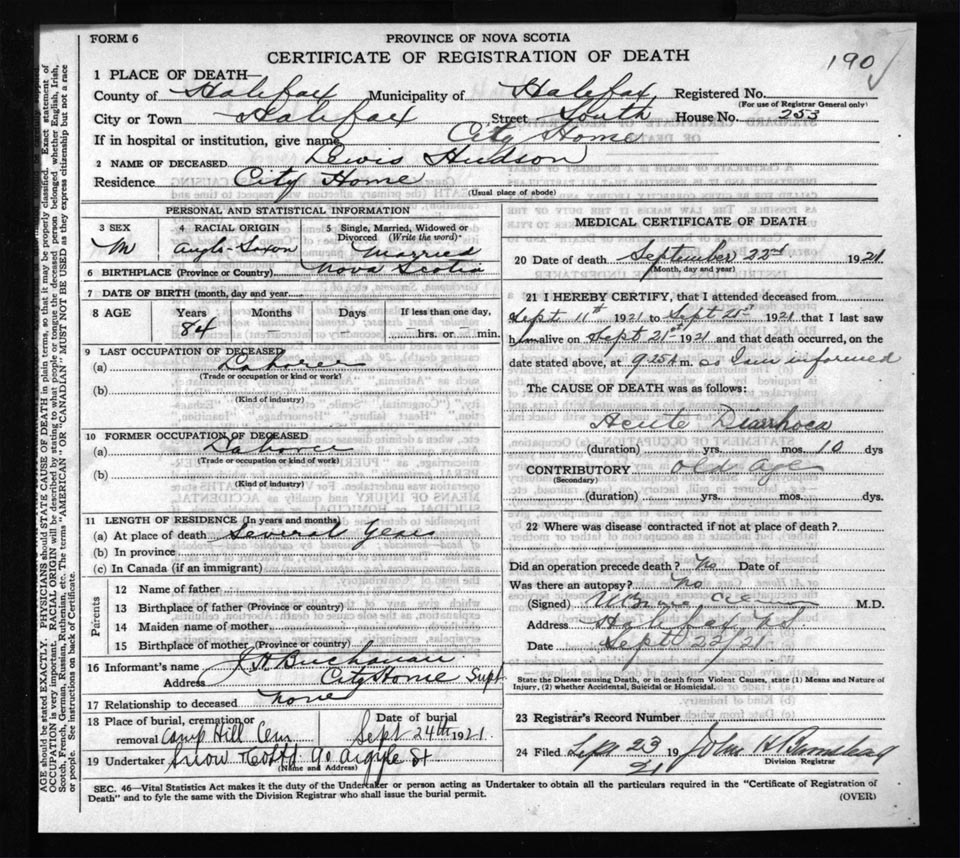 FORM 6
PROVINCE OF NOVA SCOTIA
CERTIFICATE OF REGISTRATION OF DEATH
190
1 PLACE OF DEATH—
County of Halifax Municipality of Halifax Registered No.
(For use of Registrar General only)
City or Town Halifax Street South House No. 253
If in hospital or institution, give name City Home
2 NAME OF DECEASED Lewis Hudson
Residence City Home
(Usual place of abode)
PERSONAL AND STATISTICAL INFORMATION
3 SEX
M
4 RACIAL ORIGIN
Anglo-Saxon
5 Single, Married, Widowed or Divorced (Write the word)
Married
6 BIRTHPLACE (Province or Country) Nova Scotia
7 DATE OF BIRTH (month, day and year
8 AGE Years Months Days If less than one day,
84 — — hrs. or min.
9 LAST OCCUPATION OF DECEASED
(a) Laborer
(Trade or occupation or kind or work)
(b)
(Kind of industry)
10 FORMER OCCUPATION OF DECEASED
(a) Laborer
(Trade or occupation or kind of work)
(b)
(Kind of industry)
11 LENGTH OF RESIDENCE (In years and months)
(a) At place of death Several years
(b) In province
(c) In Canada (if an immigrant)
Parents
12 Name of father
13 Birthplace of father (Province or country)
14 Maiden name of mother
15 Birthplace of mother (Province or country)
16 Informant's name J. A. Buchanan
Address City Home Supt
17 Relationship to deceased none
18 Place of burial, cremation or removal Camp Hill Cem
Date of burial Sept 24th 1921.
19 Undertaker Snow & Co Ltd 90 Argyle St
(Name and Address)
MEDICAL CERTIFICATE OF DEATH
20 Date of death September 22nd 1921
(Month, day and year)
21 I HEREBY CERTIFY, that I attended deceased from
Sept 11th 1921 to Sept 21st 1921 that I last saw
him alive on Sept 21st 1921 and that death occurred, on the
date stated above, at 9.25 A m. as I am informed
The CAUSE OF DEATH was as follows:
Acute Diarrhoea
(duration) yrs. mos. 10 dys
CONTRIBUTORY old age
(Secondary)
(duration) yrs. mos. dys.
22 Where was disease contracted if not at place of death?
Did an operation precede death? No Date of
Was there an autopsy? No
(Signed) M.D.
Address Halifax NS
Date Sept 22/21
State the Disease causing Death, or in death from Violent Causes, state (1) Means and Nature of Injury, (2) whether Accidental, Suicidal or Homicidal.
23 Registrar's Record Number
24 Filed Sep 23 1921 John H
Division Registrar
SEC. 46—Vital Statistics Act makes it the duty of the Undertaker or person acting as Undertaker to obtain all the particulars required in the "Certificate of Registration of
Death" and to fyle the same with the Division Registrar who shall issue the burial permit.
(OVER)
AGE should be stated EXACTLY. PHYSICIANS should STATE CAUSE OF DEATH in plain terms, so that it may be properly classified. Exact statement of
OCCUPATION is very important. RACIAL ORIGIN will be described by stating to what people or tongue the deceased person belonged whether English, Irish,
Scotch, French, German, Russian, Ruthenian, etc. The terms "AMERICAN" OR "CANADIAN" MUST NOT BE USED as they express citizenship but not a race
or people. See instructions on back of Certificate.